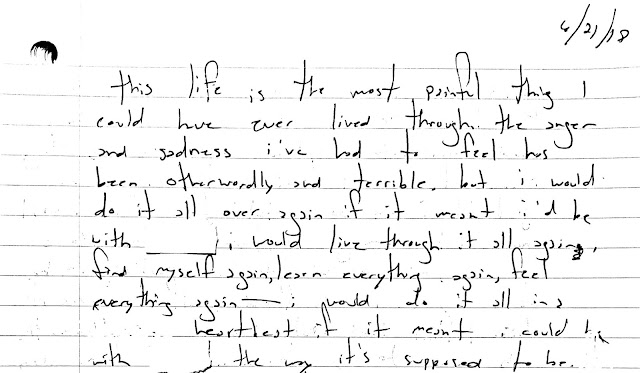 6/21/18
this life is the most painful thing I
could have ever lived through. the anger
and sadness i've had to feel has
been otherwordly and terrible. but i would
do it all over again if it meant i'd be
with ______ i would live through it all again,
find myself again, learn everything again, feel
everything again — i would do it all in a
heartbeat if it meant i could be
with ____. the way it's supposed to be.